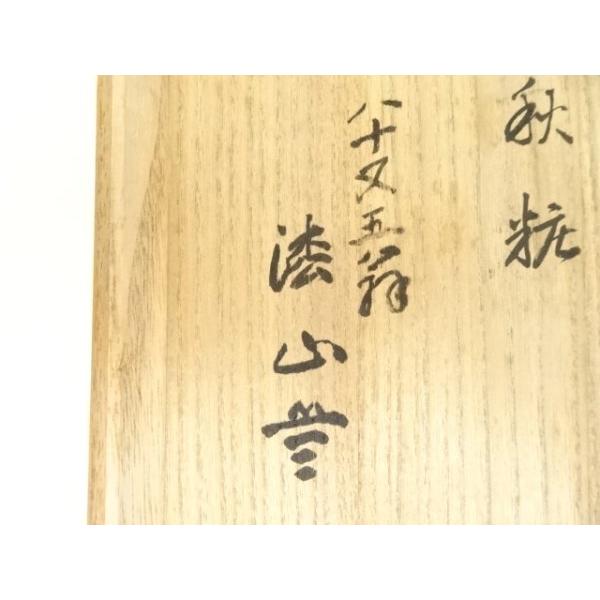 秋粧
八十又五翁
漆山